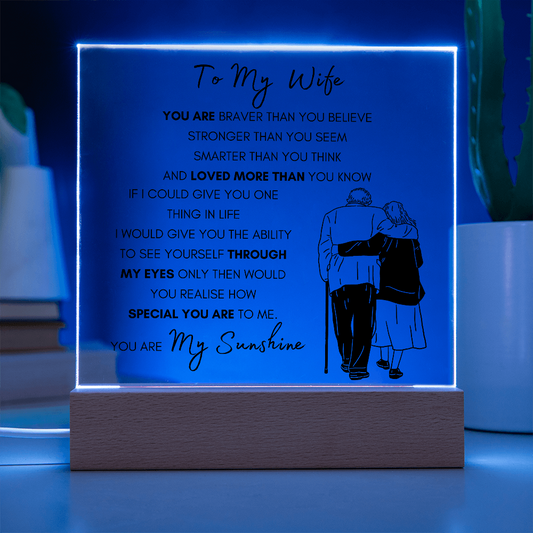 To My Wife
YOU ARE BRAVER THAN YOU BELIEVE
STRONGER THAN YOU SEEM
SMARTER THAN YOU THINK
AND LOVED MORE THAN YOU KNOW
IF I COULD GIVE YOU ONE
THING IN LIFE
I WOULD GIVE YOU THE ABILITY
TO SEE YOURSELF THROUGH
MY EYES ONLY THEN WOULD
YOU REALISE HOW
SPECIAL YOU ARE TO ME.
YOU ARE My Sunshine